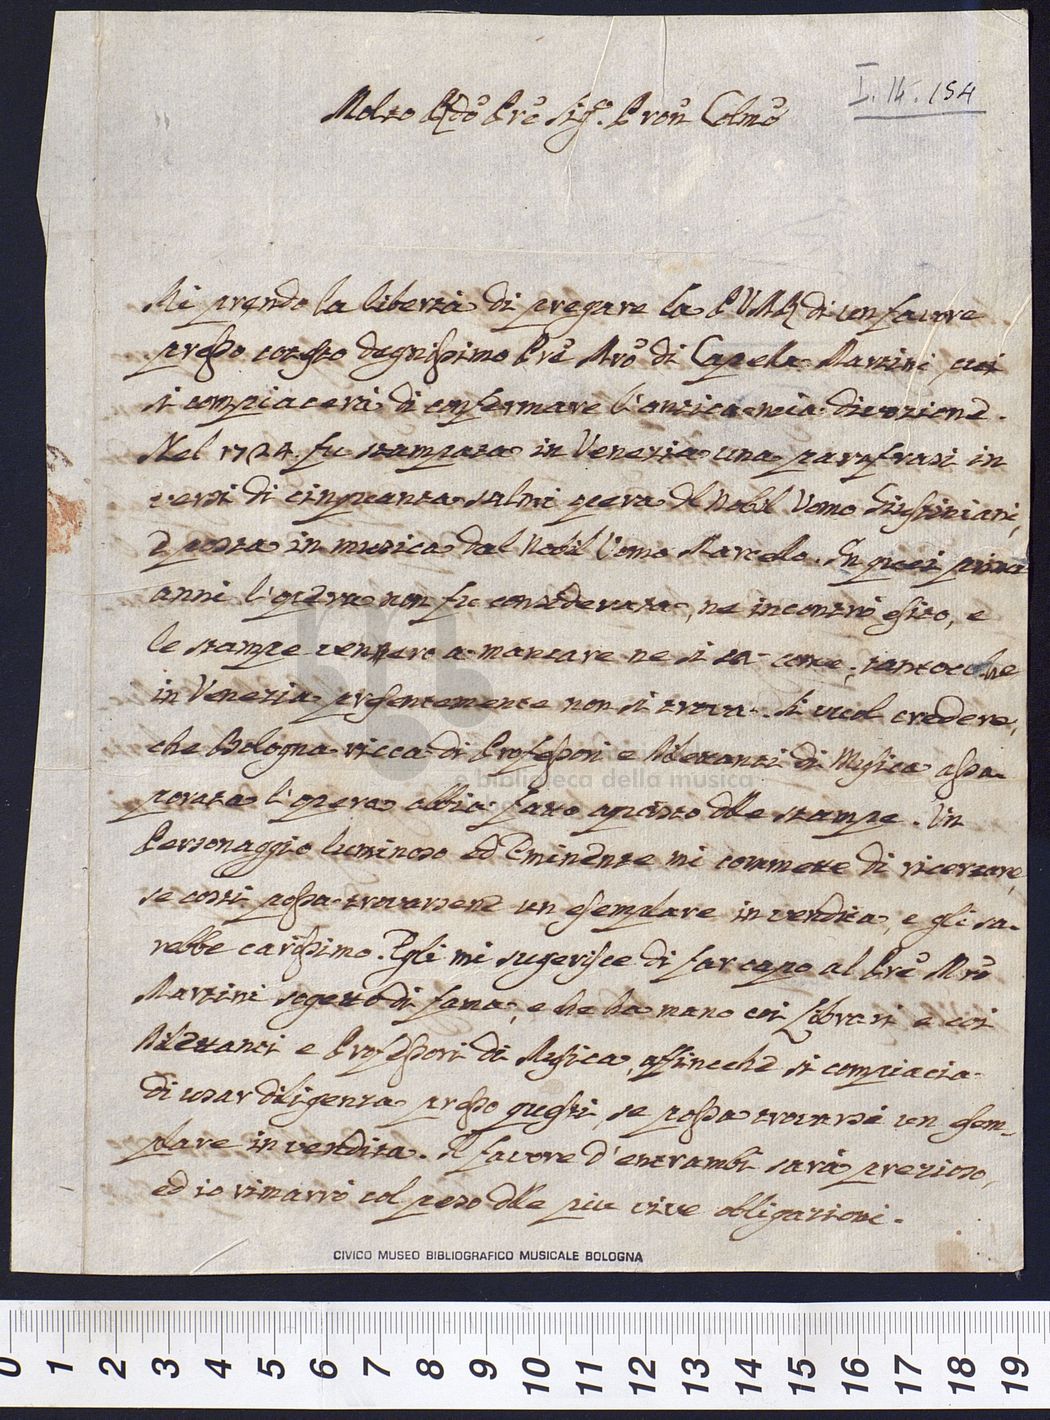 I. 14. 154
Molto Rdo Pre Sig.r Pron Colmo
Mi prendo la libertà di pregare la P.V.M.R. di un favore
presso cotesto degnissimo Pre Mro di Capela Martini, cui
si compiacerà di confermare l'antica mia divozione.
Nel 1724. fu stampata in Venezia una parafrasi in
versi di cinquanta salmi opera del Nobil Uomo Giustiniani,
e posta in musica dal Nobil Uomo Marcelo. In quei primi
anni l'opera non fu considerata, ne incontrò esito, e
le stampe vennero a mancare ne si sa come; tantocche
in Venezia presentemente non si trova. Si vuol credere,
che Bologna ricca di Professori e Diletanti di Musica assa-
porata l'opera abbia fatto aquisto delle stampe. Un
Personaggio luminoso ed Eminente mi commette di ricercare,
se costì possa trovarsene un esemplare in vendita, e gli sa-
rebbe carissimo. Egli mi sugerisce di far capo al Pre Mro
Martini sogetto di fama, e che ha mano coi Librari e coi
Diletanti e Professori di Musica, affincchè si compiacia
di usar diligenza presso questi, se possa trovarsi un esem-
plare in vendita. Il favore d'entrambi sarà prezioso,
ed io rimarrò col peso delle più vive obligazioni.
e biblioteca della musica
CIVICO MUSEO BIBLIOGRAFICO MUSICALE BOLOGNA
0 1 2 3 4 5 6 7 8 9 10 11 12 13 14 15 16 17 18 19